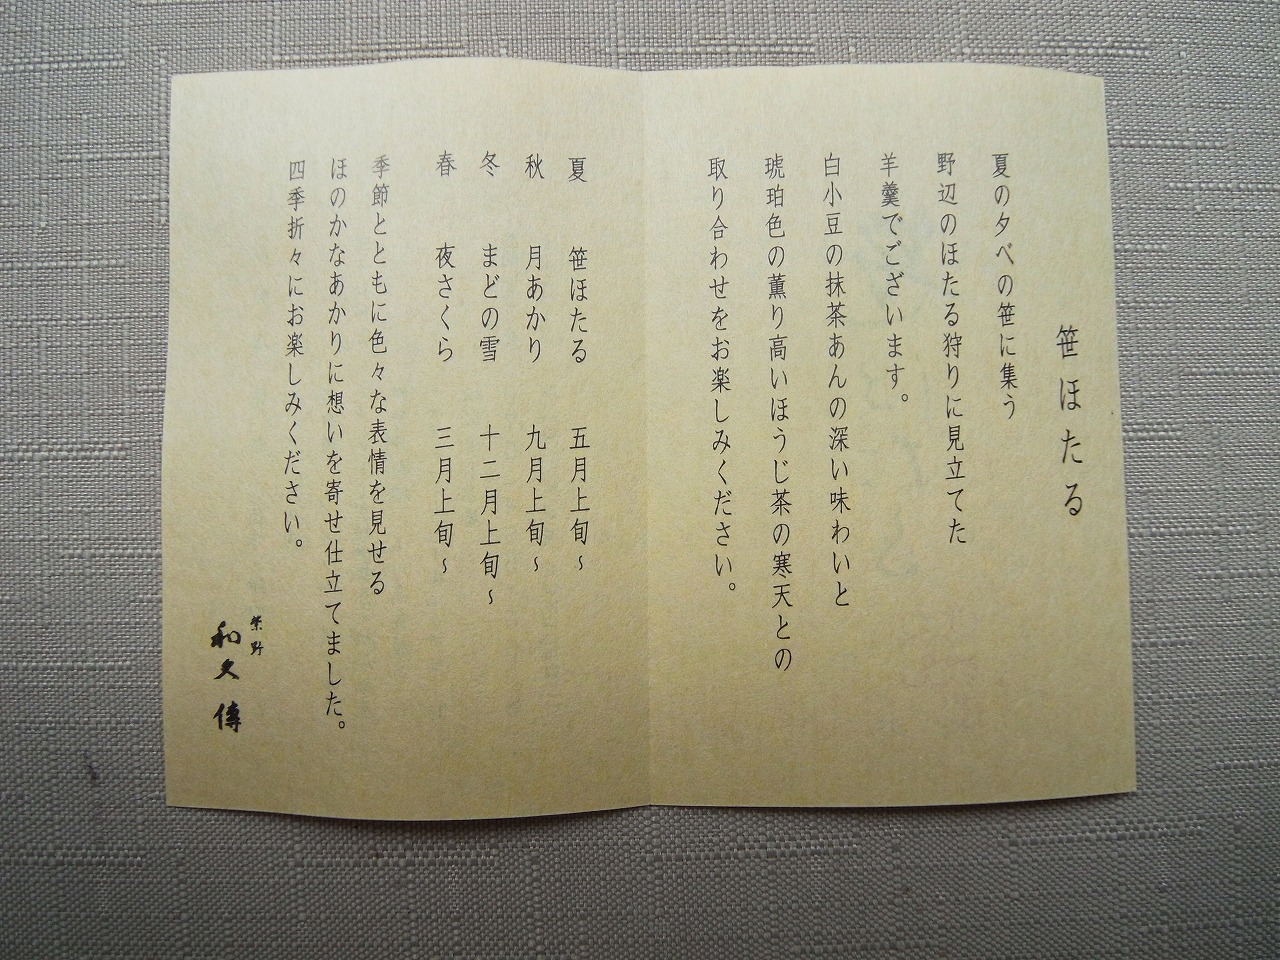 笹ほたる
夏の夕べの笹に集う
野辺のほたる狩りに見立てた
羊羹でございます。
白小豆の抹茶あんの深い味わいと
琥珀色の薫り高いほうじ茶の寒天との
取り合わせをお楽しみください。
夏 笹ほたる 五月上旬~
秋 月あかり 九月上旬~
冬 まどの雪 十二月上旬~
春 夜さくら 三月上旬~
季節とともに色々な表情を見せる
ほのかなあかりに想いを寄せ仕立てました。
四季折々にお楽しみください。
紫野
和久傳